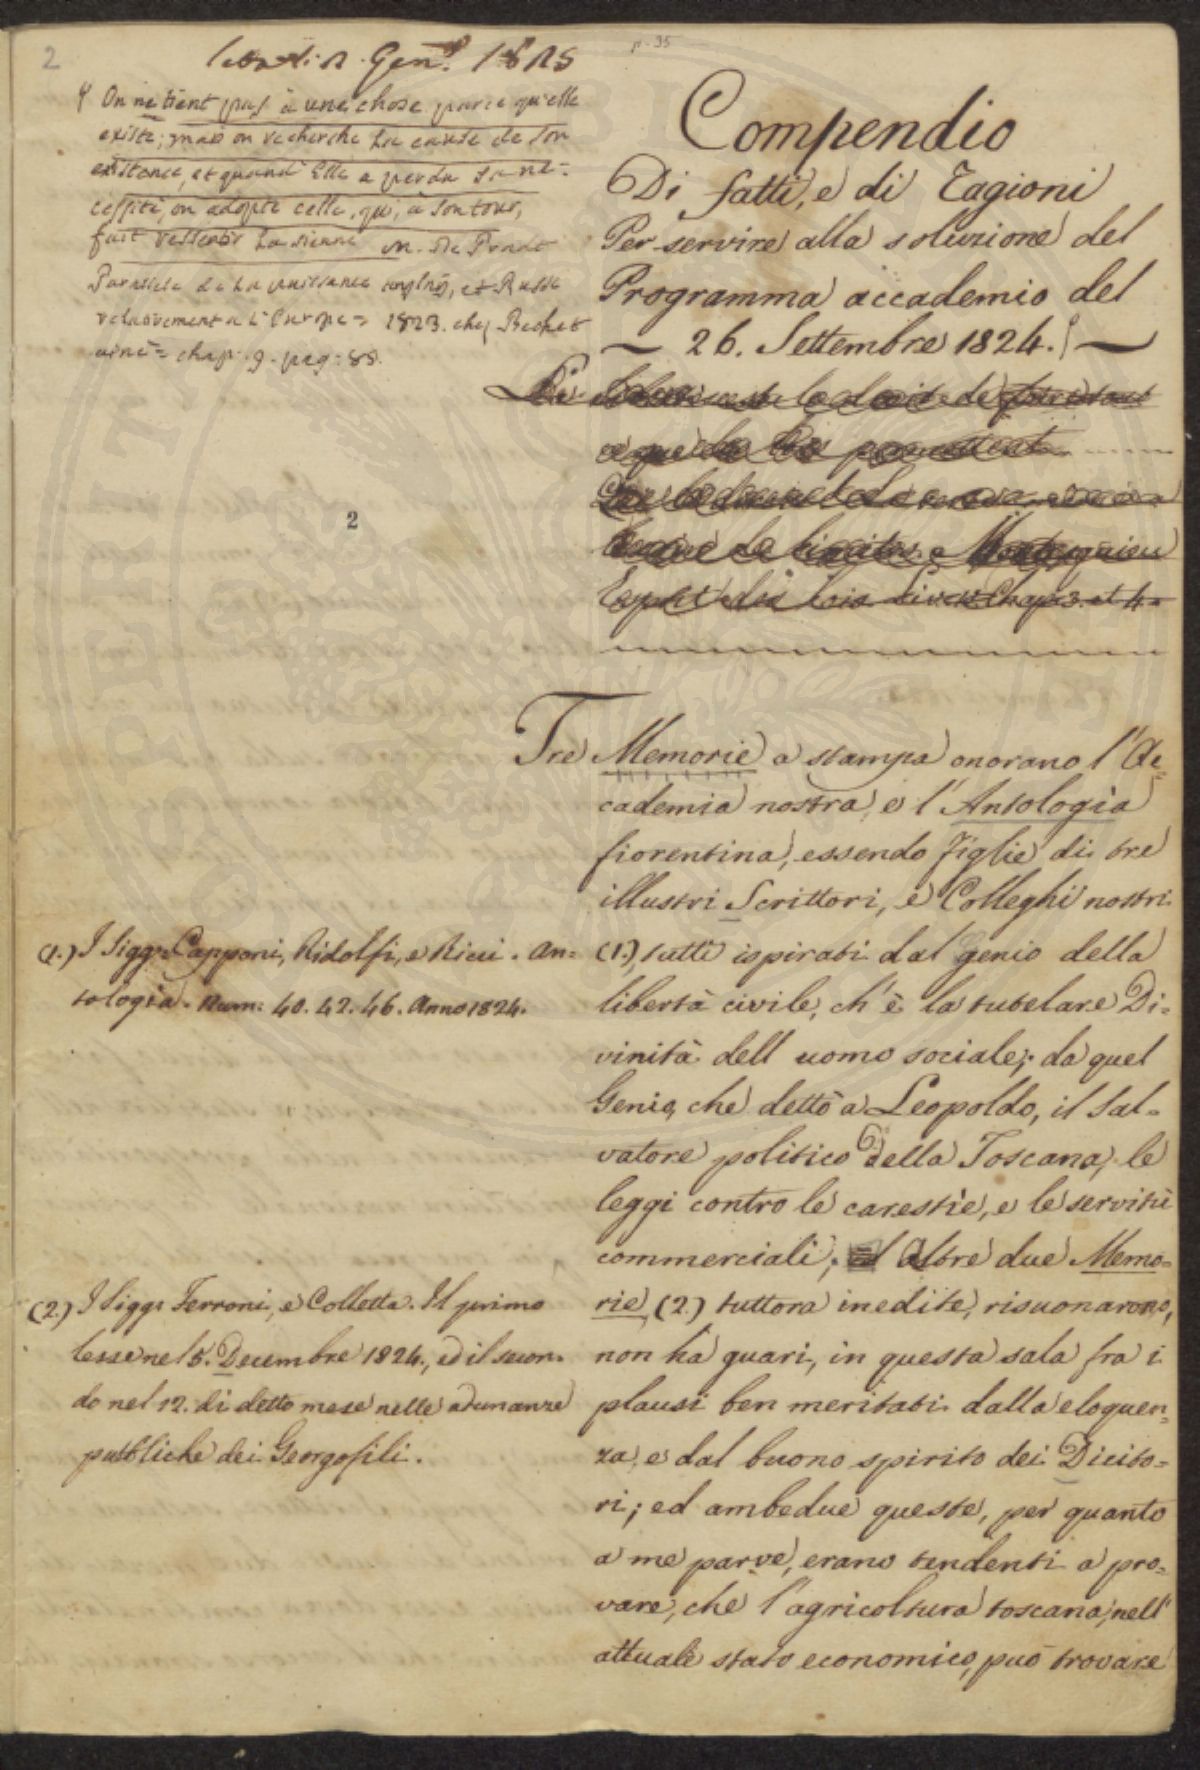 2
p. 35
letta li 2 Genn. 1825
Compendio
Di fatti, e di Ragioni
Per servire alla soluzione del
Programma accademio del
26. Settembre 1824.
On ne tient pas à une chose parce qu'elle
existe; mais on recherche la cause de son
existence, et quand Elle a perdu sa né-
cessité, on adopte celle, qui, à son tour,
fait ressentir la sienne M. De Pradt
Parallele de la puissance anglaise, et Russe
relativement a l'Europe = 1823. chez Bechet
ainé = chap. 9. pag. 88.
La liberté est le droit de faire tout
ce que les Lois permettent
la vertu même a
besoin de limites. Montesquieu
Esprit des Lois Livre Chap. 3. et 4.
2
Tre Memorie a stampa onorano l'Ac=
cademia nostra, e l'Antologia
fiorentina, essendo figlie di tre
illustri Scrittori, e Colleghi nostri
(1.), tutti ispirati dal genio della
libertà civile, ch'è la tutelare Di=
vinità dell uomo sociale; da quel
Genio, che dettò a Leopoldo, il Sal=
vatore politico della Toscana, le
leggi contro le carestie, e le servitù
commerciali; Altre due Memo=
rie, (2.) tuttora inedite, risuonarono,
non ha guari, in questa sala fra i
plausi ben meritati dalla eloquen=
za, e dal buono spirito dei Dicito=
ri; ed ambedue queste, per quanto
a me parve, erano tendenti a pro=
vare, che l'agricoltura toscana, nell'
attuale stato economico, può trovare
(1.) I Sigg.ri Capponi, Ridolfi, e Ricci. An=
tologia. Num: 40. 42. 46. Anno 1824.
(2.) I Sigg.ri Ferroni, e Colletta. Il primo
lesse nel 5. Decembre 1824., ed il secon=
do nel 12. di detto mese nelle adunanze
pubbliche dei Georgofili.